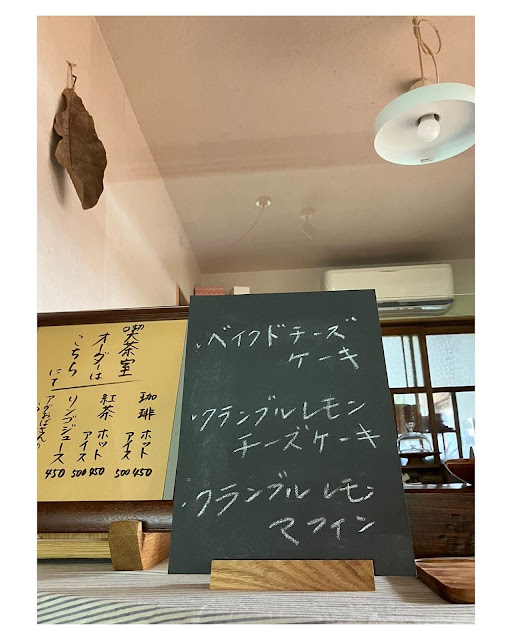 喫茶室
オーダーは
こちら
にて
珈琲 ホット 450
アイス 500
紅茶 ホット 450
アイス 500
リンゴジュース 450
・ベイクドチーズ
ケーキ
・クランブルレモン
チーズケーキ
・クランブルレモン
マフィン